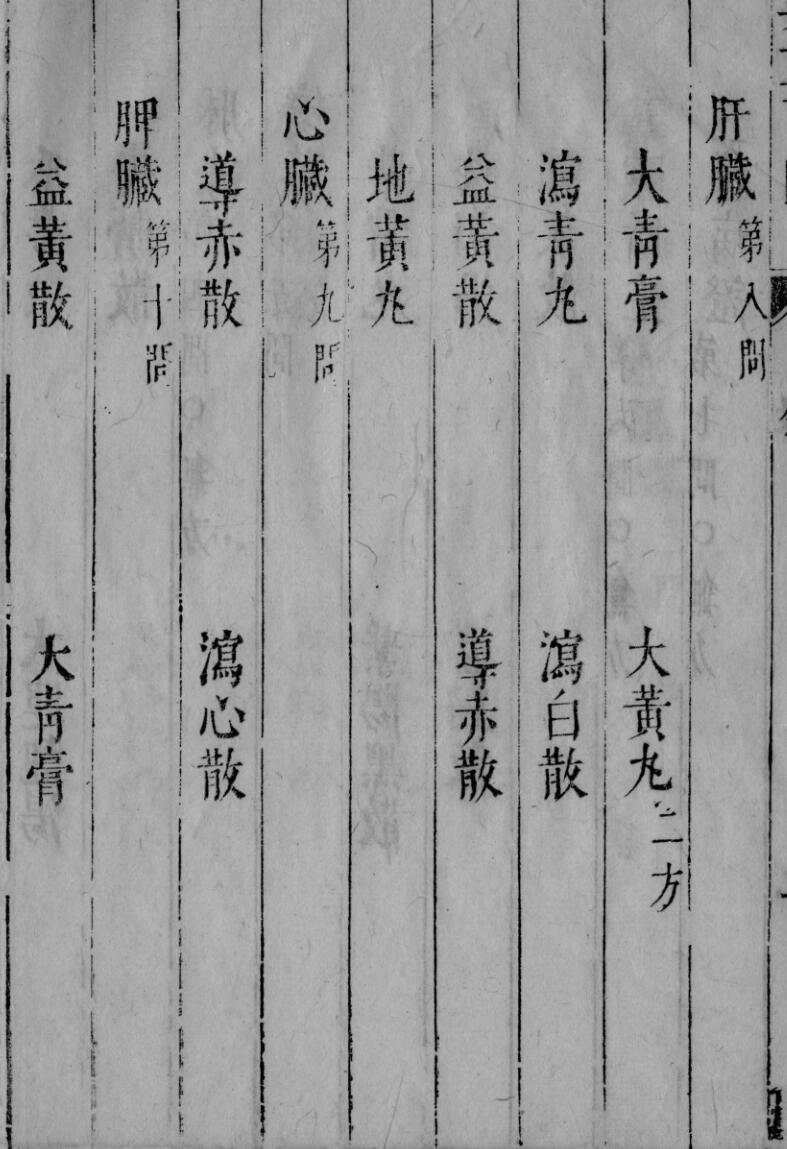 肝臟第八問
大青膏　大黃丸二方
瀉青丸　瀉白散
益黃散　導赤散
地黃丸
心臟第九問
導赤散　瀉心散
脾臟第十問
益黃散　大青膏